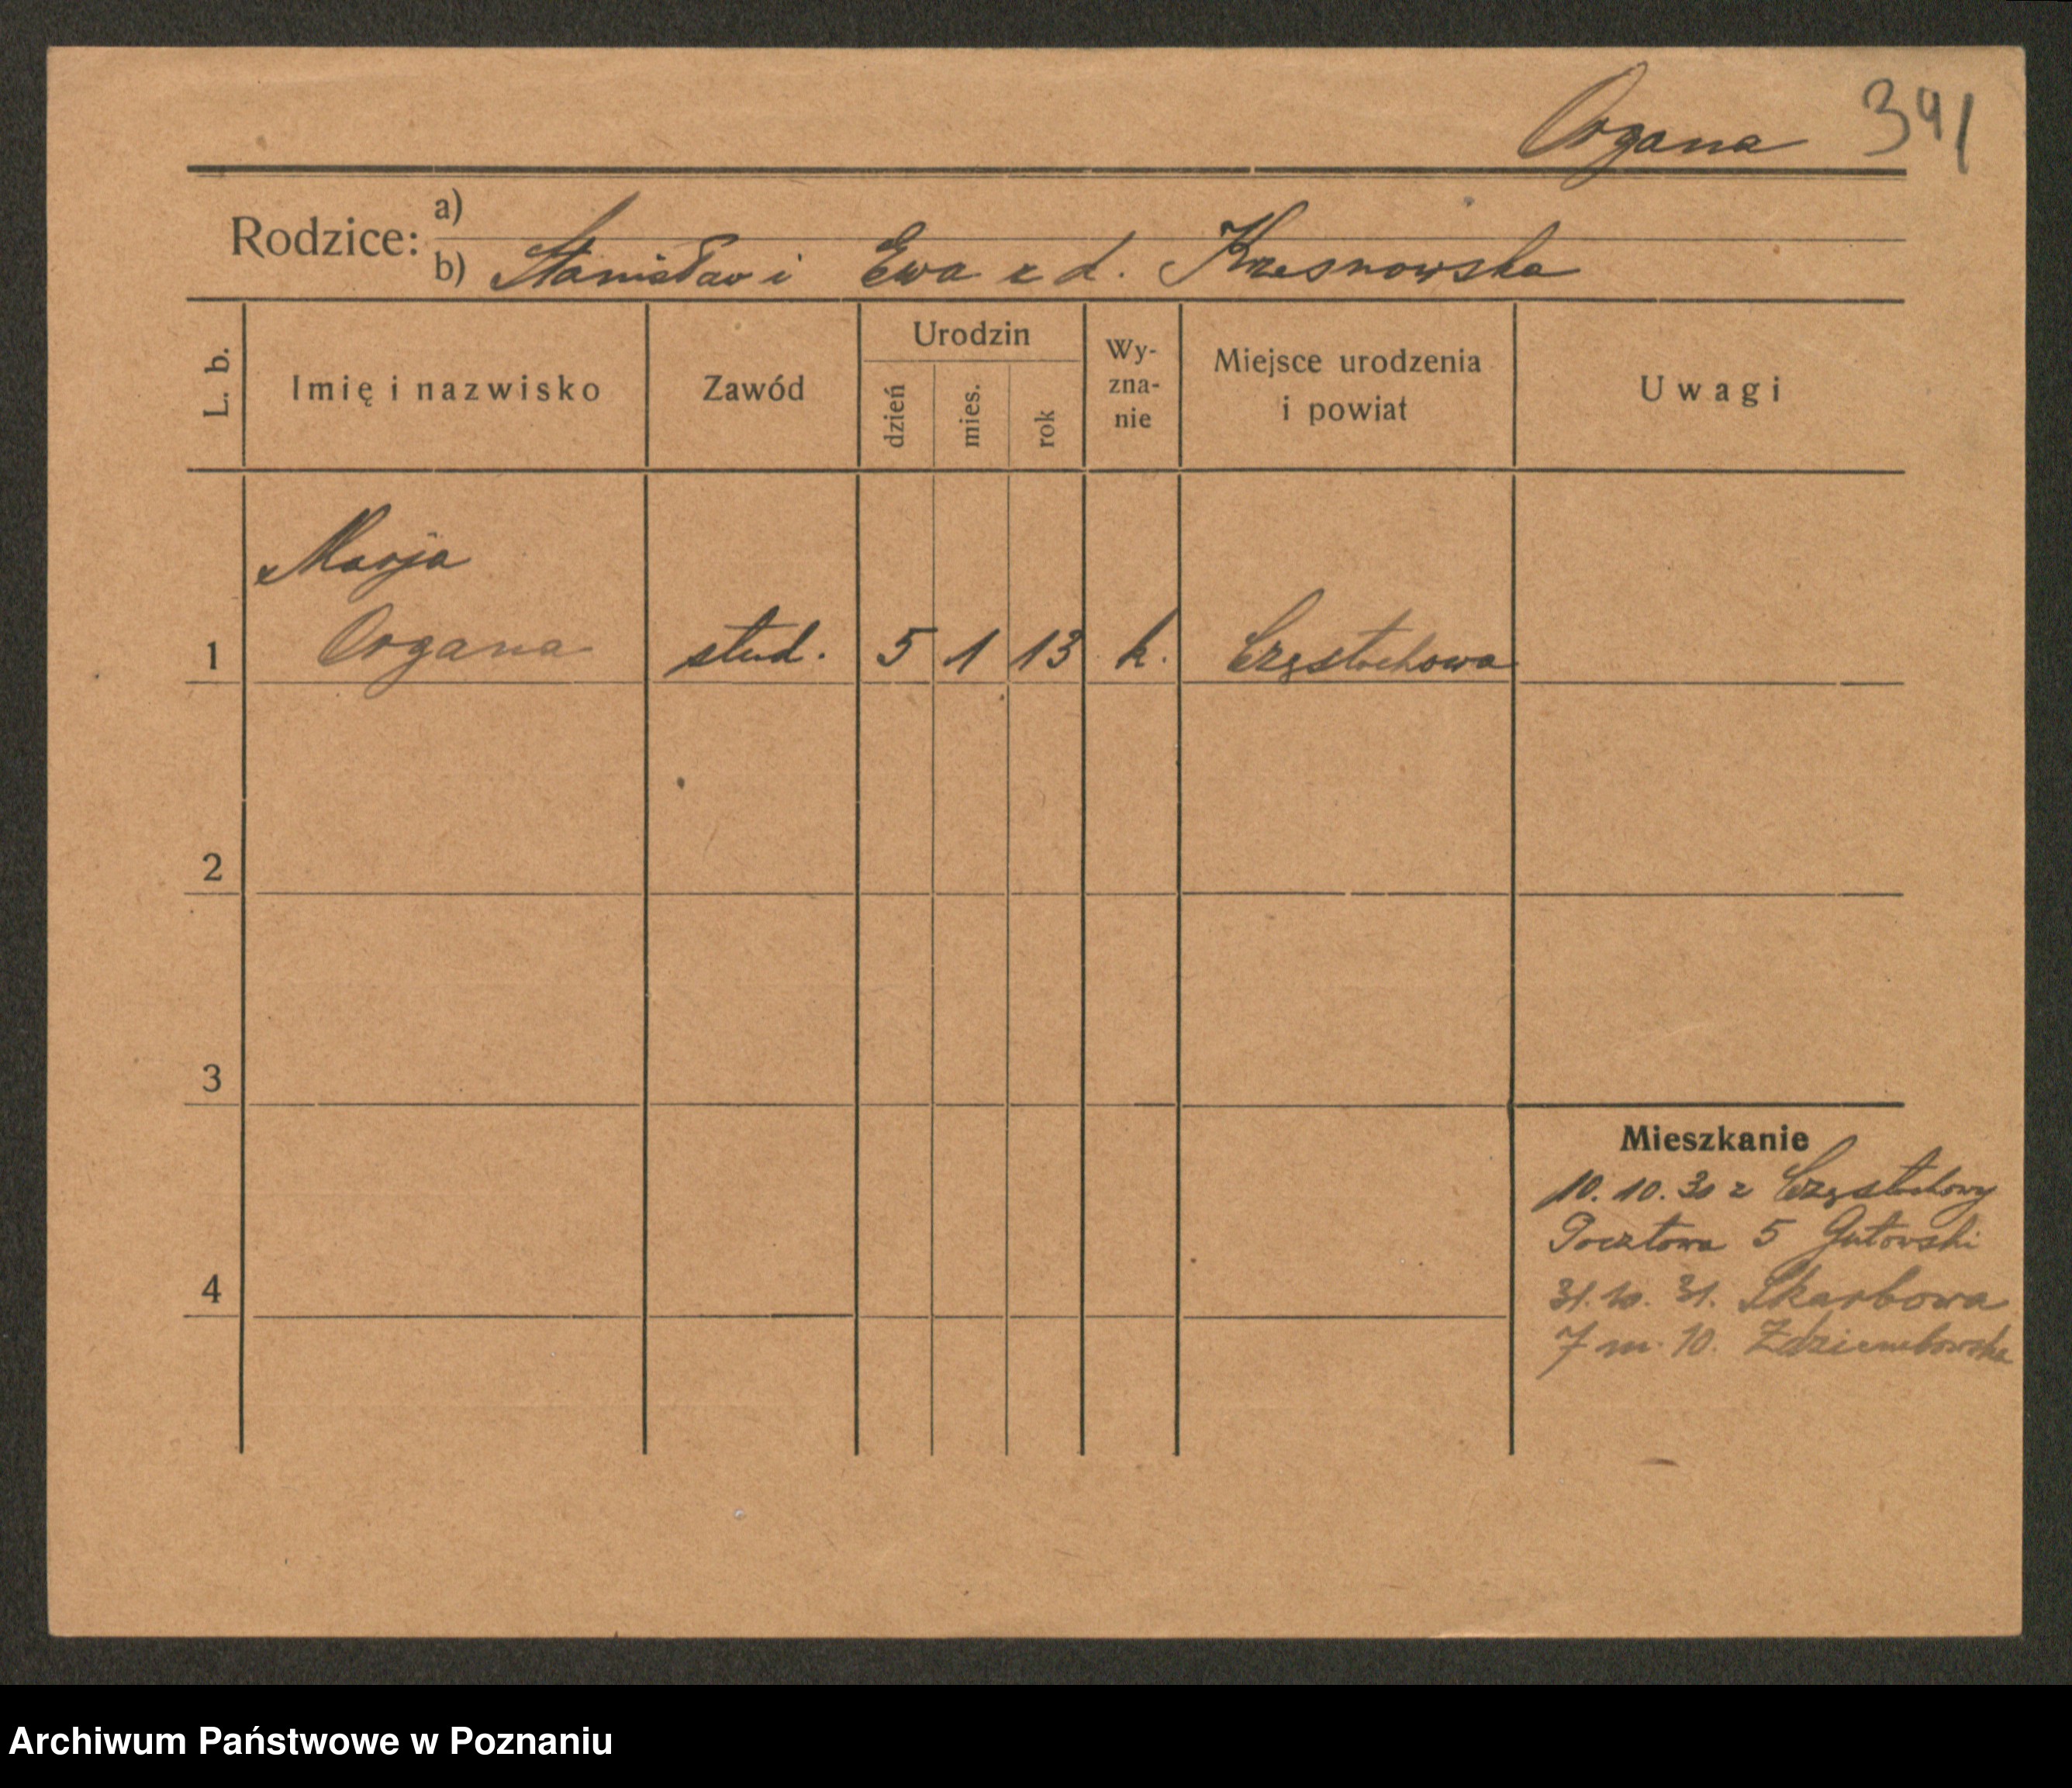 Organa 341
Rodzice: a)
b) Stanisław i Ewa z d. Krzesnowska
L. b.
Imię i nazwisko
Zawód
Urodzin
dzień
mies.
rok
Wy-
zna-
nie
Miejsce urodzenia
i powiat
Uwagi
Marja
1 Organa stud. 5 1 13 k. Częstochowa
2
3
4
Mieszkanie
10. 10. 30 z Częstochowy
Pocztowa 5 Gutowski
31. 10. 31. Skarbowa
7 m. 10.
Archiwum Państwowe w Poznaniu